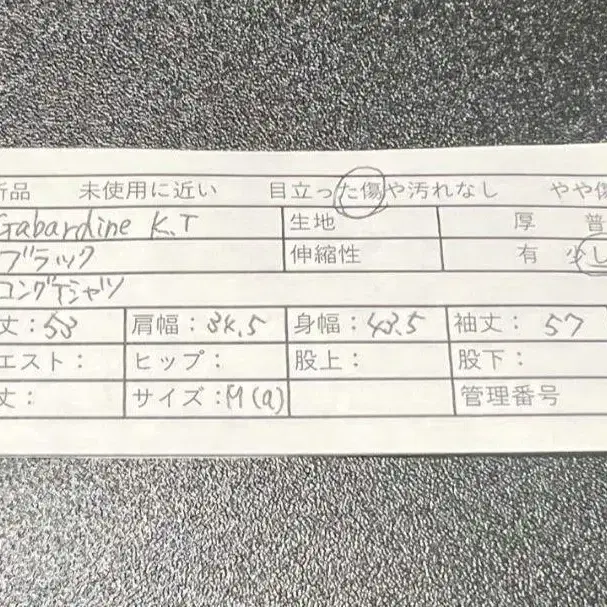 新品 未使用に近い 目立った傷や汚れなし やや傷
Gabardine K.T 生地 厚 普
ブラック 伸縮性 有 少し
ロングTシャツ
丈：53 肩幅：34.5 身幅：43.5 袖丈：57
エスト： ヒップ： 股上： 股下：
丈： サイズ：M(a) 管理番号